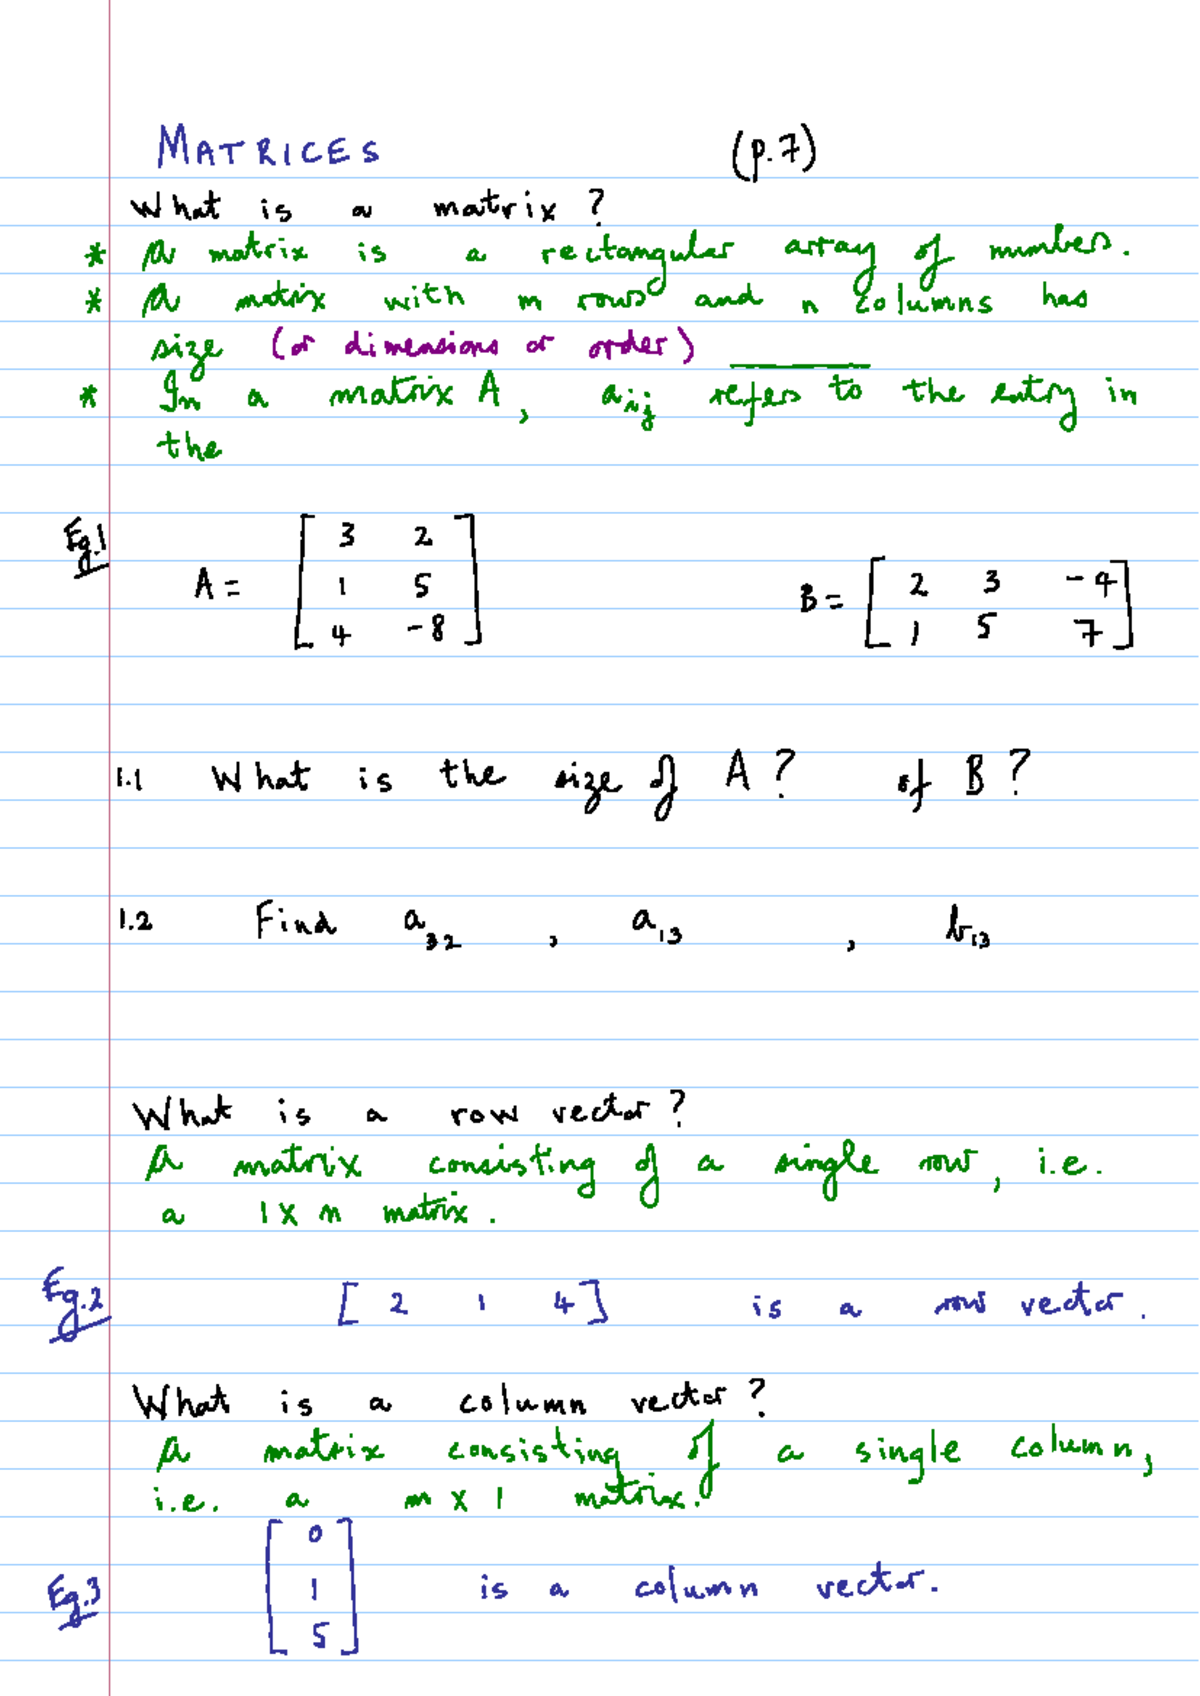 MATRICES (p.7)
What is a matrix ?
* A matrix is a rectangular array of numbers.
* A matrix with m rows and n columns has
size (or dimensions or order) ______
* In a matrix A, aij refers to the entry in
the
Eg.1
A = [ 3 2
1 5
4 -8 ]
B = [ 2 3 -4
1 5 7 ]
1.1 What is the size of A ? of B ?
1.2 Find a32 , a13 , b13
What is a row vector ?
A matrix consisting of a single row, i.e.
a 1 x n matrix.
Eg.2 [ 2 1 4 ] is a row vector.
What is a column vector ?
A matrix consisting of a single column,
i.e. a m x 1 matrix.
Eg.3 [ 0
1
5 ] is a column vector.